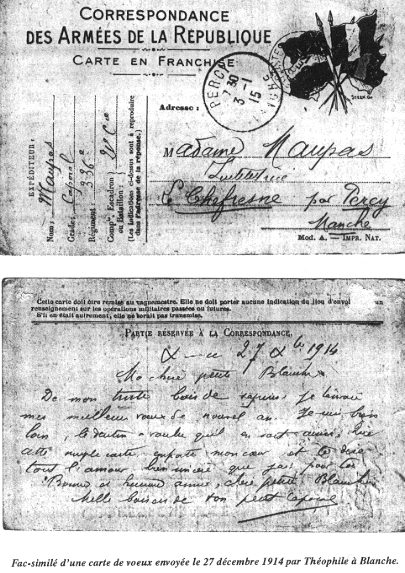 CORRESPONDANCE
DES ARMÉES DE LA RÉPUBLIQUE
CARTE EN FRANCHISE
PERCY
7 30
3 -1
15
Adresse :
Madame Maupas
Institutrice
Le Chefresne par Percy
Manche
Mod. A. — IMPR. NAT.
EXPÉDITEUR :
Nom : Maupas
Grade : Caporal
Régiment : 336e
Compie (Escadron) ou Bataillon :
(Les indications ci-dessus sont à reproduire dans l'adresse de la réponse.)
Cette carte doit être remise au vaguemestre. Elle ne doit porter aucune indication du lieu d'envoi
renseignement sur les opérations militaires passées ou futures.
S'il en était autrement, elle ne serait pas transmise.
PARTIE RÉSERVÉE À LA CORRESPONDANCE.
27 Xbre 1914
Ma chère petite Blanche
De mon triste bois de sapins, je t'envoie
mes meilleurs voeux de nouvel an. Je suis bien
loin, le destin a voulu qu'il en soit ainsi, que
cette simple carte emporte mon coeur et te dise
tout l'amour bien sincère que j'ai pour toi
Bonne et heureuse année, chère petite Blanche
Mille baisers de ton petit caporal
Fac-similé d'une carte de voeux envoyée le 27 décembre 1914 par Théophile à Blanche.